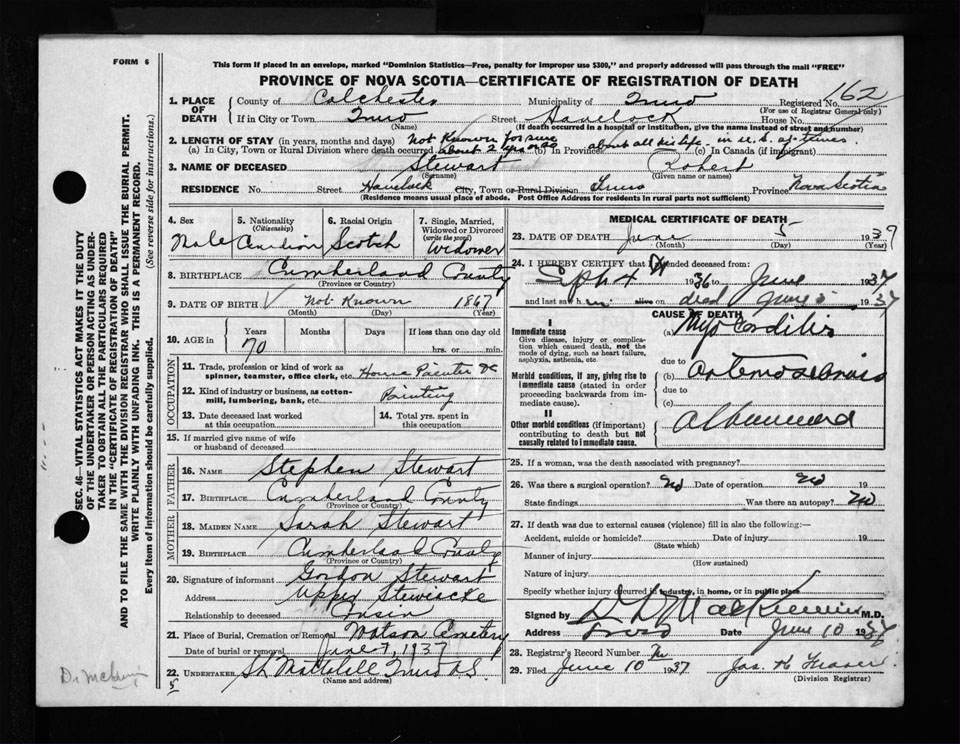 FORM 6
This form if placed in an envelope, marked "Dominion Statistics—Free, penalty for improper use $300," and properly addressed will pass through the mail "FREE"
PROVINCE OF NOVA SCOTIA—CERTIFICATE OF REGISTRATION OF DEATH
Registered No. 162
(For use of Registrar General only)
1. PLACE OF DEATH
County of Colchester Municipality of Truro
If in City or Town Truro Street Havelock House No.
(Name) (If death occurred in a hospital or institution, give the name instead of street and number)
2. LENGTH OF STAY (in years, months and days) Not Known for sure
(a) In City, Town or Rural Division where death occurred about 2 yrs or so (b) In Province about all his life (c) In Canada (if immigrant) in U.S. at times
3. NAME OF DECEASED Stewart Robert
(Surname) (Given name or names)
RESIDENCE No. Street Havelock City, Town or Rural Division Truro Province Nova Scotia
(Residence means usual place of abode. Post Office Address for residents in rural parts not sufficient)
4. Sex Male
5. Nationality (Citizenship) Canadian
6. Racial Origin Scotch
7. Single, Married, Widowed or Divorced (write the word) Widower
8. BIRTHPLACE Cumberland County
(Province or County)
9. DATE OF BIRTH Not Known 1867
(Month) (Day) (Year)
10. AGE in Years Months Days If less than one day old
70 hrs. or min.
OCCUPATION
11. Trade, profession or kind of work as spinner, teamster, office clerk, etc. House Painter
12. Kind of industry or business, as cotton-mill, lumbering, bank, etc. Painting
13. Date deceased last worked at this occupation
14. Total yrs. spent in this occupation
15. If married give name of wife or husband of deceased
FATHER
16. NAME Stephen Stewart
17. BIRTHPLACE Cumberland County
(Province or County)
MOTHER
18. MAIDEN NAME Sarah Stewart
19. BIRTHPLACE Cumberland County
(Province or County)
20. Signature of informant Gordon Stewart
Address Upper Stewiacke
Relationship to deceased Cousin
21. Place of Burial, Cremation or Removal Watson Cemetery
Date of burial or removal June 7, 1937
22. UNDERTAKER Truro N.S.
(Name and address)
5
MEDICAL CERTIFICATE OF DEATH
23. DATE OF DEATH June 5 1937
(Month) (Day) (Year)
24. I HEREBY CERTIFY that I attended deceased from:
Sept 4 1936 to June 1937
and last saw him alive on dead June 5 1937
CAUSE OF DEATH
I
Immediate cause
Give disease, injury or complication which caused death, not the mode of dying, such as heart failure, asphyxia, asthenia, etc.
(a) Myocarditis
due to
Morbid conditions, if any, giving rise to immediate cause (stated in order proceeding backwards from immediate cause).
(b) Arteriosclerosis
due to
(c)
II
Other morbid conditions (if important) contributing to death but not causally related to immediate cause.
25. If a woman, was the death associated with pregnancy?
26. Was there a surgical operation? No Date of operation No 19
State findings Was there an autopsy? No
27. If death was due to external causes (violence) fill in also the following:—
Accident, suicide or homicide? Date of injury 19
(State which)
Manner of injury
(How sustained)
Nature of injury
Specify whether injury occurred in industry, in home, or in public place
Signed by M.D.
Address Truro Date June 10 1937
28. Registrar's Record Number
29. Filed June 10 1937 Jas. H. Fraser
(Division Registrar)
SEC. 46—VITAL STATISTICS ACT MAKES IT THE DUTY
OF THE UNDERTAKER OR PERSON ACTING AS UNDERTAKER TO OBTAIN ALL THE PARTICULARS REQUIRED
IN THE "CERTIFICATE OF REGISTRATION OF DEATH"
AND TO FILE THE SAME WITH THE DIVISION REGISTRAR WHO SHALL ISSUE THE BURIAL PERMIT.
WRITE PLAINLY WITH UNFADING INK. THIS IS A PERMANENT RECORD.
Every item of information should be carefully supplied. (See reverse side for instructions.)